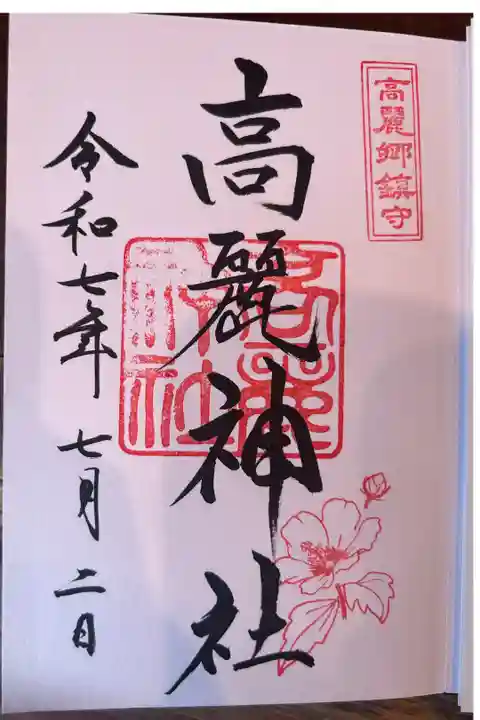 高麗郷鎮守
高麗神社
令和七年七月二日